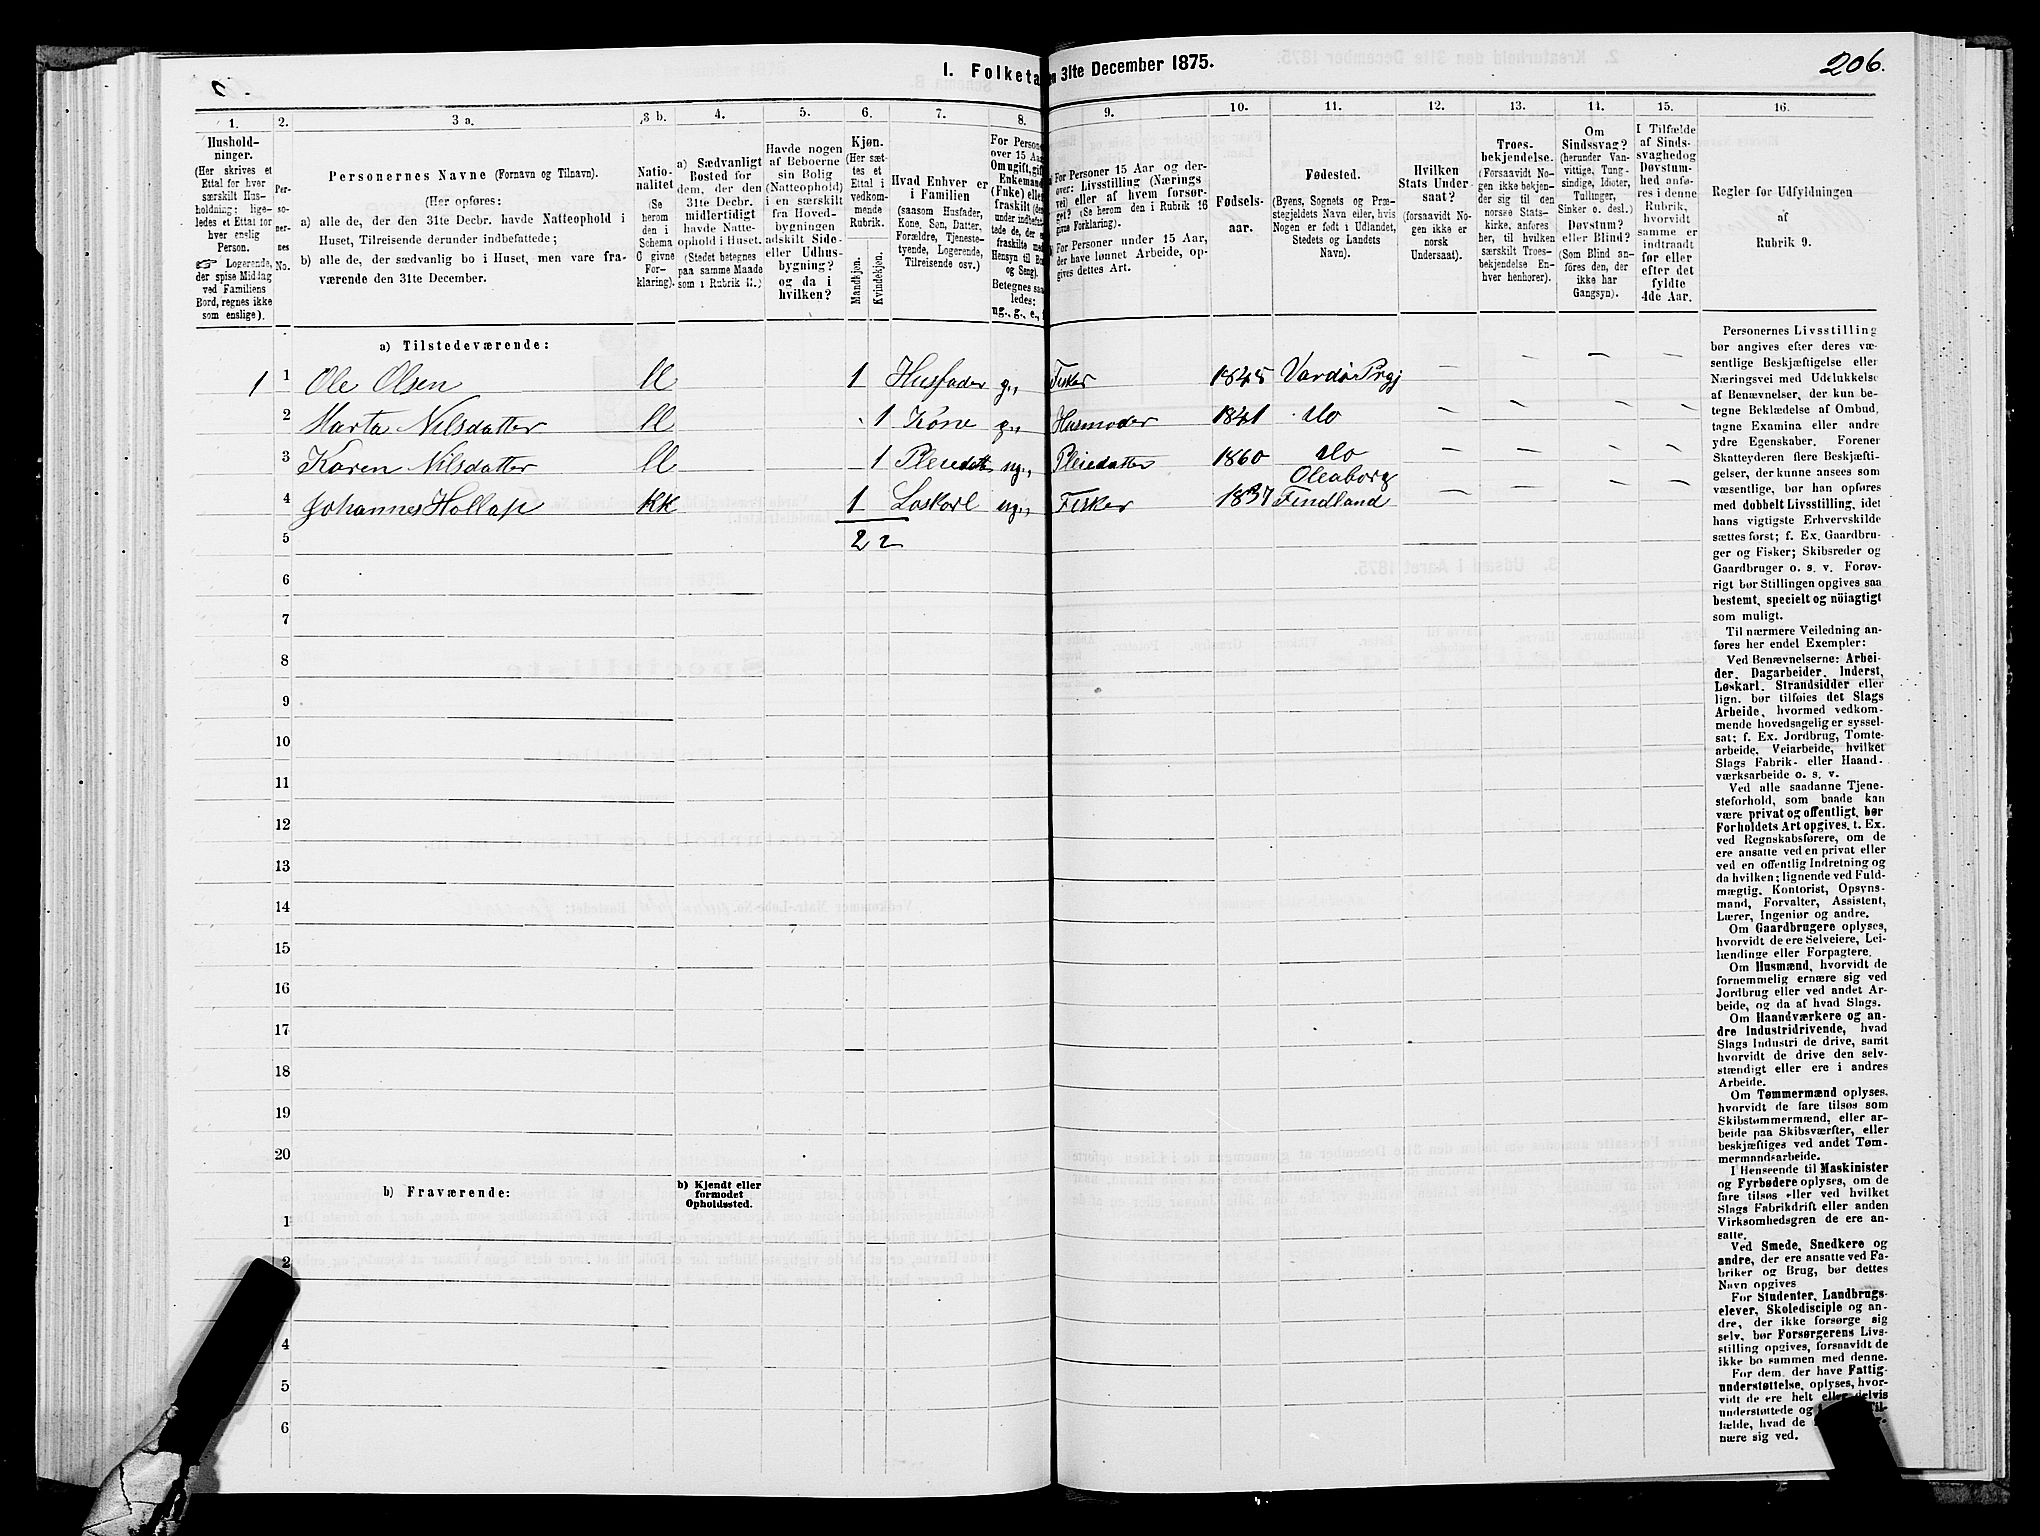 I. Folketa
n 31te December 1875.
206.
1.
Hushold-
ninger.
(Her skrives et
Ettal for hver
særskilt Hus-
holdning; lige-
ledes et Ettal for
hver enslig
Person.
☞ Logerende,
der spise Middag
ved Familiens
Bord, regnes ikke
som enslige).
2.
Per-
so-
ner-
nes
No.
3 a.
Personernes Navne (Fornavn og Tilnavn).
(Her opføres:
a) alle de, der den 31te Decbr. havde Natteophold i
Huset, Tilreisende derunder indbefattede;
b) alle de, der sædvanlig bo i Huset, men vare fra-
værende den 31te December.
3 b.
Natio-
nalitet
(Se
herom
den i
Schema
C givne
For-
klaring).
4.
a) Sædvanligt
Bosted for
dem, der den
31te Decbr.
midlertidigt
havde Natte-
ophold i Huset.
(Stedet betegnes
paa samme Maade
som i Rubrik 11.)
5.
Havde nogen
af Beboerne
sin Bolig
(Natteophold)
i en særskilt
fra Hoved-
bygningen
adskilt Side-
eller Udhus-
bygning?
og da i
hvilken?
6.
Kjøn.
(Her sæt-
tes et
Ettal i
vedkom-
mende
Rubrik.
Mandkjøn.
Kvindekjøn.
7.
Hvad Enhver er
i Familien
(saasom Husfader,
Kone, Søn, Datter,
Forældre, Tjeneste-
tyende, Logerende,
Tilreisende osv.).
8.
For Persone
over 15 Aar
Om ugift, gift
Enkemand
(Enke) eller
fraskilt (der-
under indbefat-
tede de, der e
fraskilte med
Hensyn til Bo
og Seng).
Betegnes saa
ledes:
ug., g., e., f
9.
For Personer 15 Aar og der-
over: Livsstilling (Nærings
vei) eller af hvem forsør-
get? (Se herom den i Rubrik 16
givne Forklaring).
For Personer under 15 Aar,
der have lønnet Arbeide, op-
gives dettes Art.
10.
Fødsels-
aar.
11.
Fødested.
(Byens, Sognets og Præ-
stegjeldets Navn eller, hvis
Nogen er født i Udlandet,
Stedets og Landets
Navn).
12.
Hvilken
Stats Under-
saat?
(forsaavidt No-
gen ikke er
norsk
Undersaat).
13.
Troes-
bekjendelse.
(Forsaavidt No-
gen ikke bekjen-
der sig til den
norske Stats-
kirke, anføres
her, til hvilken
særskilt Troes-
bekjendelse En-
hver henhører).
14.
Om
Sindssvag?
(herunder Van-
vittige, Tung-
sindige, Idioter,
Tullinger,
Sinker o. desl.)
Døvstum?
eller Blind?
(Som Blind an-
føres den, der
ikke har
Gangsyn).
15.
I Tilfælde
af Sinds-
svaghed og
Døvstum-
hed anfø-
res i denne
Rubrik,
hvorvidt
samme er
indtraadt
før eller
efter det
fyldte
4de Aar.
16.
Regler før Udfyldningen
af
Rubrik 9.
a) Tilstedeværende:
1 1 Ole Olsen ll 1 Husfader g., Fisker 1845 Vardø Prgj — — — —
2 Marta Nilsdatter ll 1 Kone g., Husmoder 1841 do — — — —
3 Karen Nilsdatter ll 1 Pleiedatt ug., Pleiedatter 1860 do — — — —
4 Johannes Hollap kk 1 Løskarl ug., Fisker 1837 Oleaborg Findland — — — —
5 2 2
6
7
8
9
10
11
12
13
14
15
16
17
18
19
20
b) Fraværende:
b) Kjendt eller
formodet
Opholdssted.
1
2
4
5
6
Personernes Livsstilling
bør angives efter deres væ-
sentlige Beskjæftigelse eller
Næringsvei med Udelukkelse
af Benævnelser, der kun be-
tegne Beklædelse af Ombud,
tagne Examina eller andre
ydre Egenskaber. Forener
Skatteyderen flere Beskjæfti-
gelser, der kunne ansees som
væsentlige, bør han opføres
med dobbelt Livsstilling, idet
hans vigtigste Erhvervskilde
sættes først; f. Ex. Gaardbru-
ger og Fisker; Skibsreder og
Gaardbruger o. s. v. Forøv-
rigt bør Stillingen opgives saa
bestemt, specielt og nöiagtigt
som muligt.
Til nærmere Veiledning an-
føres her endel Exempler:
Ved Benævnelserne: Arbei-
der, Dagarbeider, Inderst,
Løskarl, Strandsidder eller
lign. bør tilføies det Slags
Arbeide, hvormed vedkom-
mende hovedsagelig er syssel-
sat; f. Ex. Jordbrug, Tomte-
arbeide, Veiarbeide, hvilket
Slags Fabrik- eller Haand-
værksarbeide o. s. v.
Ved alle saadanne Tjene-
steforhold, som baade kan
være privat og offentligt, bør
Forholdets Art opgives, t. Ex.
ved Regnskabsførere, om de
ere ansatte ved en privat eller
ved en offentlig Indretning og
da hvilken; lignende ved Fuld-
mægtig, Kontorist, Opsyns-
mand, Forvalter, Assistent,
Lærer, Ingeniør og andre.
Om Gaardbrugere oplyses,
hvorvidt de ere Selveiere, Lei-
lændinge eller Forpagtere.
Om Husmænd, hvorvidt de
fornemmelig ernære sig ved
Jordbrug eller ved andet Ar-
beide, og da af hvad Slags.
Om Haandværkere og an-
dre Industridrivende, hvad
Slags Industri de drive, samt
hvorvidt de drive den selv-
stændigt eller ere i andres
Arbeide.
Om Tømmermænd oplyses,
hvorvidt de fare tilsøs som
Skibstømmermænd, eller ar-
beide paa Skibsværfter, eller
beskjæftiges ved andet Tøm-
mermandsarbeide.
I Henseende til Maskinister
og Fyrbødere oplyses, om de
fare tilsøs eller ved hvilket
Slags Fabrikdrift eller anden
Virksomhedsgren de ere an-
satte.
Ved Smede, Snedkere og
andre, der ere ansatte ved Fa-
briker og Brug, bør dettes
Navn opgives
For Studenter, Landbrugs-
elever, Skoledisciple og an-
dre, der ikke forsørge sig
selv, bør Forsørgerens Livs-
stilling opgives, forsaavidt de
ikke bo sammen med denne.
For dem, der have Fattig-
understøttelse, oplyses, hvor-
vidt de ere helt eller delvis
understøttede og Til-
fælde, hvad de
nære sig ved.